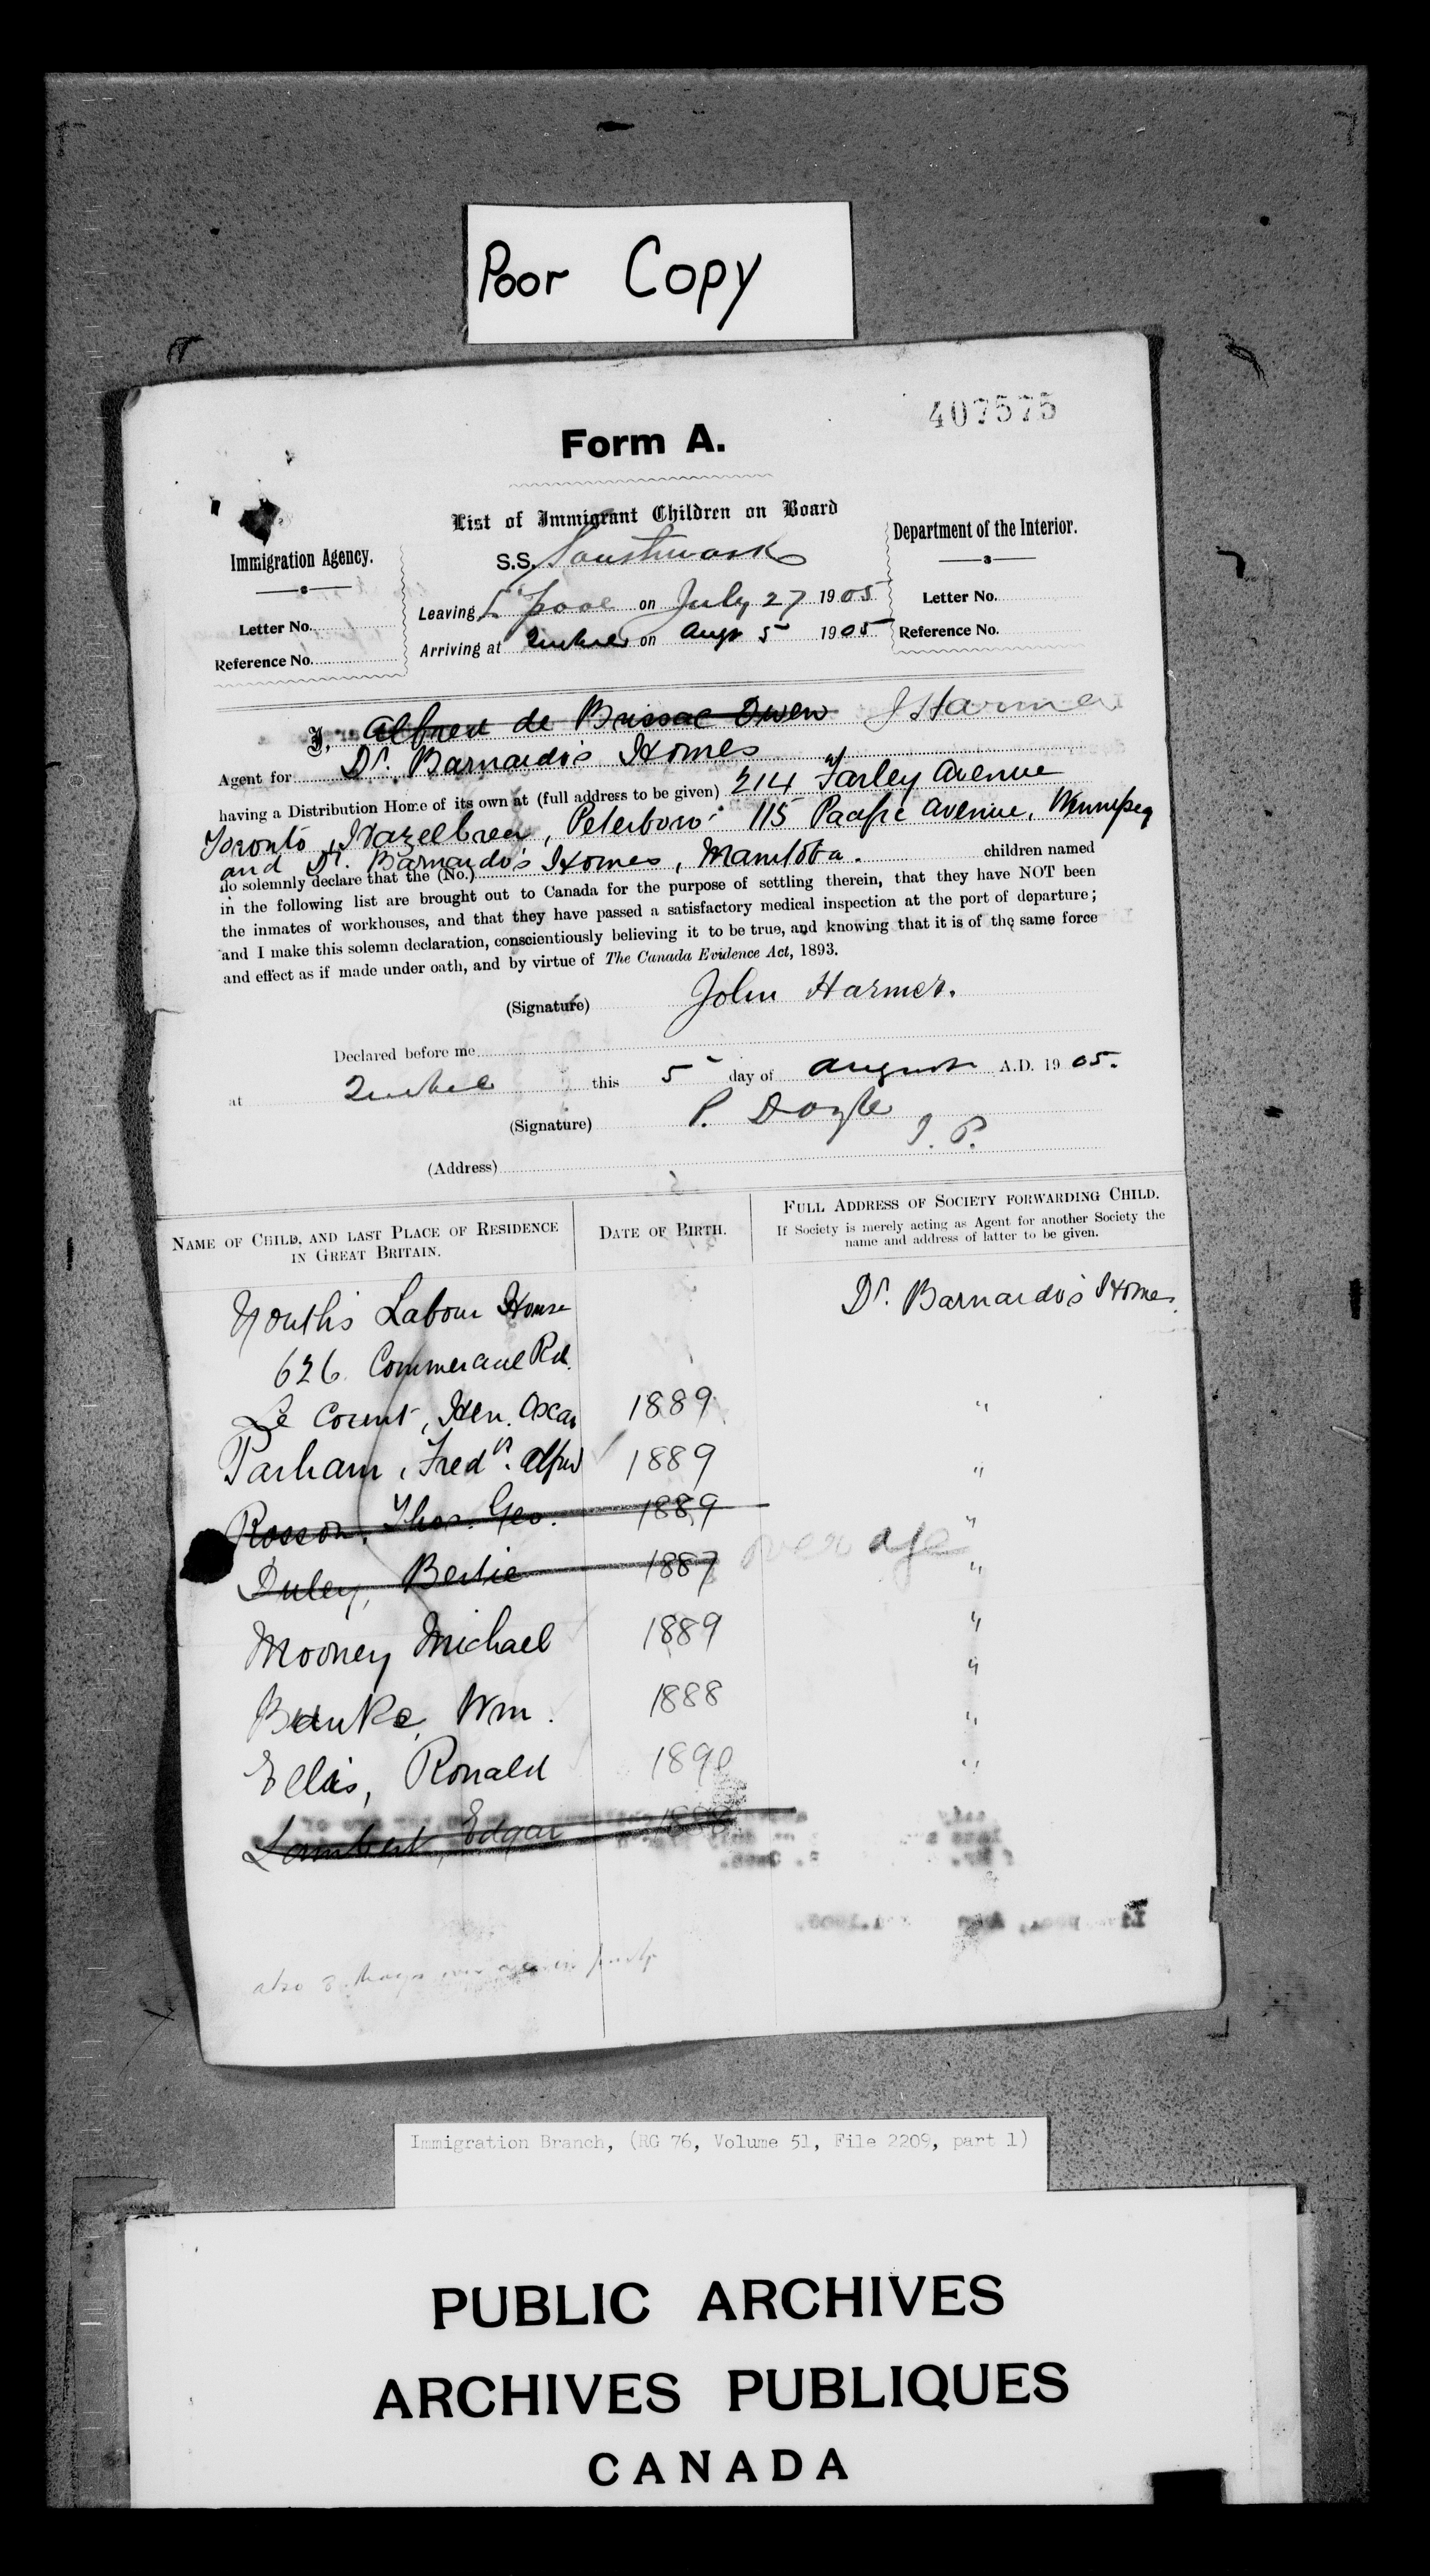 Poor Copy
407575
Form A.
List of Immigrant Children on Board
S.S. Southwark
Immigration Agency.
Letter No.
Reference No.
Leaving L'pool on July 27 1905
Arriving at Quebec on Augt 5 1905
Department of the Interior.
Letter No.
Reference No.
I, Albreu de Brissac Owen J Harmer
Agent for Dr. Barnardo's Homes
having a Distribution Home of its own at (full address to be given) 214 Farley Avenue
Toronto, Hazelbrae, Peterboro' 115 Pacific Avenue, Winnipeg
and Dr. Barnardo's Homes, Manitoba.
do solemnly declare that the (No.) children named
in the following list are brought out to Canada for the purpose of settling therein, that they have NOT been
the inmates of workhouses, and that they have passed a satisfactory medical inspection at the port of departure;
and I make this solemn declaration, conscientiously believing it to be true, and knowing that it is of the same force
and effect as if made under oath, and by virtue of The Canada Evidence Act, 1893.
(Signature) John Harmer.
Declared before me
at Quebec this 5 day of August A.D. 1905.
(Signature) P. Doyle
J. P.
(Address)
NAME OF CHILD, AND LAST PLACE OF RESIDENCE IN GREAT BRITAIN.
DATE OF BIRTH.
FULL ADDRESS OF SOCIETY FORWARDING CHILD.
If Society is merely acting as Agent for another Society the
name and address of latter to be given.
Youths Labour House Dr. Barnardo's Homes.
626 Commercial Rd.
Le Count, Hen. Oscar 1889 "
Parham, Fredk. Alfred 1889 "
Rosson, Thos. Geo. 1889 "
over age
Duley, Bertie 1887 "
Mooney Michael 1889 "
Bunke, Wm. 1888 "
Ellis, Ronald 1890 "
Lambert, Edgar 1888
also 3 boys over age in party
Immigration Branch, (RG 76, Volume 51, File 2209, part 1)
PUBLIC ARCHIVES
ARCHIVES PUBLIQUES
CANADA